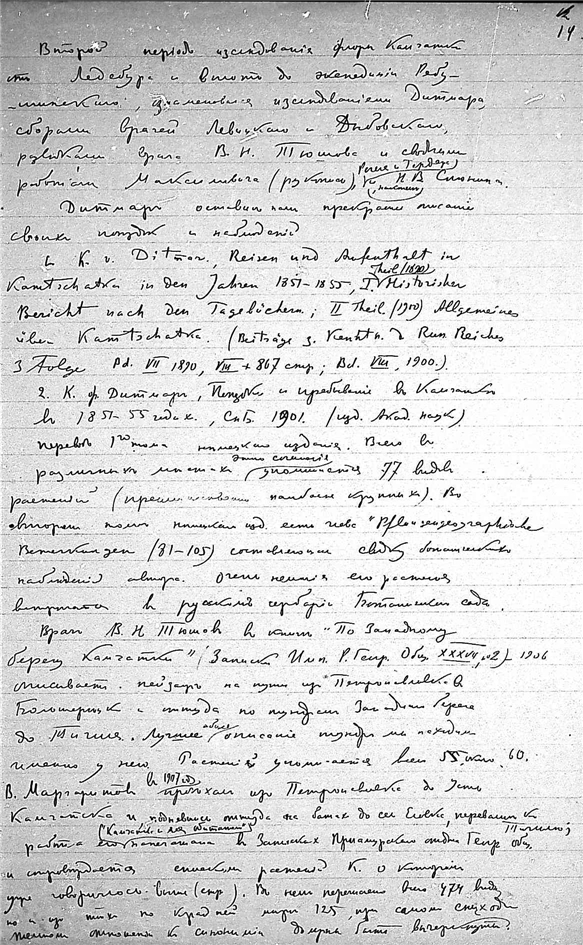 14.
Второй периодъ изслѣдованія флоры Камчатки
отъ Ледебура и вплоть до экспедиціи Рябу-
шинскаго, ознаменовался изслѣдованіями Дитмара,
сборами врачей Левицкаго и Дыбовскаго,
врача В. Н. Тюшова и
работами Максимовича (рукопись), Н. В. Слюнина.
Дитмаръ оставилъ намъ прекрасное описаніе
своихъ поѣздокъ и наблюденій
1. K. v. Ditmar, Reisen und Aufenthalt in
Kamtschatka in den Jahren 1851-1855, I Theil (1890) Historischer
Bericht nach den Tagebüchern; II Theil (1900) Allgemeines
über Kamtschatka. (Beiträge z. Kenntn. d. Russ. Reiches
3 Folge Bd. VII 1890, VIII + 867 стр; Bd. VIII, 1900.).
2. К. ф. Дитмаръ, Поѣздки и пребываніе въ Камчаткѣ
въ 1851-55 годахъ., Спб. 1901. (изд. Акад. наукъ)
переводъ 1го тома нѣмецкаго изданія. Всего въ
различныхъ мѣстахъ этого сочиненія упоминается 77 видовъ
растеній (преимущественно наиболѣе крупныхъ). Во
второмъ томѣ нѣмецкаго изд. есть глава "Pflanzengeographische
(81-105) составляющая сводку ботаническихъ
наблюденій автора. Очень немногія его растенія
въ русскомъ гербаріи Ботаническаго сада.
Врачъ В. Н. Тюшовъ въ книгѣ "По Западному
берегу Камчатки" (Записки Имп. Р. Геогр. Общ. XXXVII, №2) 1906
описываетъ пейзажъ на пути изъ Петропавловска въ
Большерѣцкъ и оттуда по тундрамъ Западнаго берега
до Тигиля. Лучшее описаніе тундры мы находимъ
именно у него. Растеній упоминается всего около 60.
В. Маргаритовъ въ проѣхалъ изъ Петропавловска до Усть
Камчатска и поднявшись оттуда на батахъ до сел. Еловка перевалилъ къ Тигилю;
работа его ("Камчатка и ея обитатели") напечатана въ Запискахъ Приамурскаго отдѣла Геогр. общ.
и сопровождается спискомъ растеній К. о которомъ
уже говорилось выше (стр ). Въ немъ перечислено всего 474 вида
но и изъ нихъ по крайней мѣрѣ 125, при самомъ
отношеніи къ синониміи должны быть вычеркнуты.